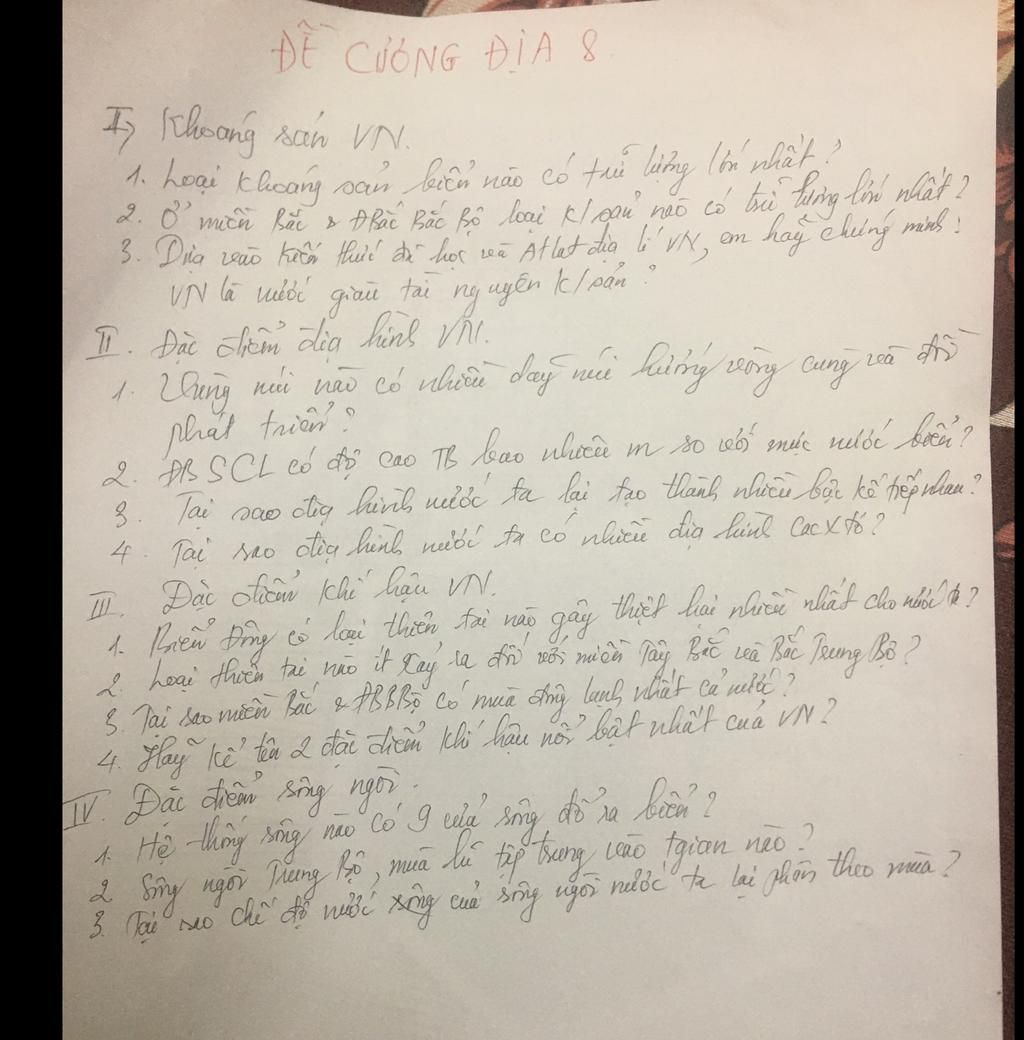 ĐỀ CƯƠNG ĐỊA 8
I, Khoáng sản VN.
1. Loại khoáng sản biển nào có trữ lượng lớn nhất?
2. Ở miền Bắc & ĐBắc Bắc Bộ loại k/sản nào có trữ lượng lớn nhất?
3. Dựa vào kiến thức đã học và Atlat địa lí VN, em hãy chứng minh:
VN là nước giàu tài nguyên k/sản?
II. Đặc điểm địa hình VN.
1. Vùng núi nào có nhiều dãy núi hướng vòng cung và đồi
phát triển?
2. ĐBSCL có độ cao TB bao nhiêu m so với mực nước biển?
3. Tại sao địa hình nước ta lại tạo thành nhiều bậc kế tiếp nhau?
4. Tại sao địa hình nước ta có nhiều địa hình cacxtơ?
III. Đặc điểm khí hậu VN.
1. Biển Đông có loại thiên tai nào gây thiệt hại nhiều nhất cho nước ta?
2. Loại thiên tai nào ít xảy ra đối với miền Tây Bắc và Bắc Trung Bộ?
3. Tại sao miền Bắc & ĐBBBộ có mùa đông lạnh nhất cả nước?
4. Hãy kể tên 2 đặc điểm khí hậu nổi bật nhất của VN?
IV. Đặc điểm sông ngòi.
1. Hệ thống sông nào có 9 cửa sông đổ ra biển?
2. Sông ngòi Trung Bộ, mùa lũ tập trung vào tgian nào?
3. Tại sao chế độ nước sông của sông ngòi nước ta lại phân theo mùa?